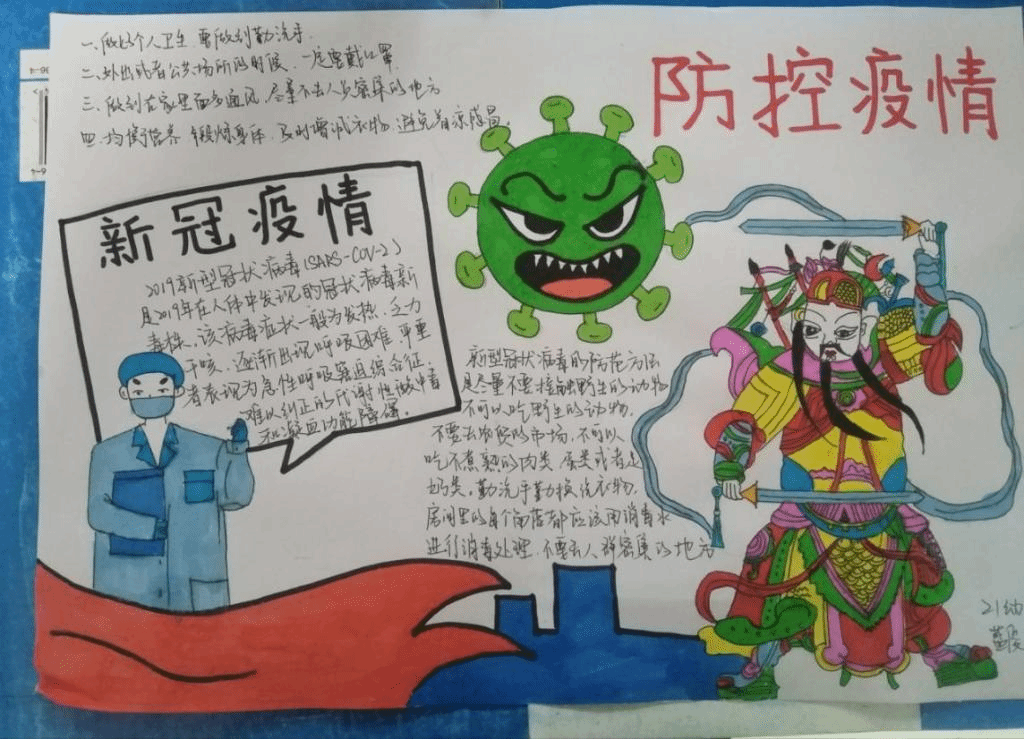 一、做好个人卫生,要做到勤洗手.
二、外出或者公共场所的时候,一定要戴口罩
三、做到在家里面多通风,尽量不去人员密集的地方
四、均衡营养 锻炼身体,及时增减衣物,避免着凉感冒。
防控疫情
新冠疫情
2019新型冠状病毒(SARS-COV-2)
是2019年在人体中发现的冠状病毒新
毒株,该病毒症状一般为发热、乏力
干咳、逐渐出现呼吸困难,严重
者表现为急性呼吸窘迫综合征、
难以纠正的代谢性酸中毒
和凝血功能障碍。
新型冠状病毒的防范方法
是尽量不要接触野生的动物
不可以吃野生的动物,
不要去海鲜的市场,不可以
吃不煮熟的肉类 蛋类或者是
奶类,勤洗手勤换洗衣物,
房间里的每个角落都应该用消毒水
进行消毒处理,不要去人群密集的地方
21幼